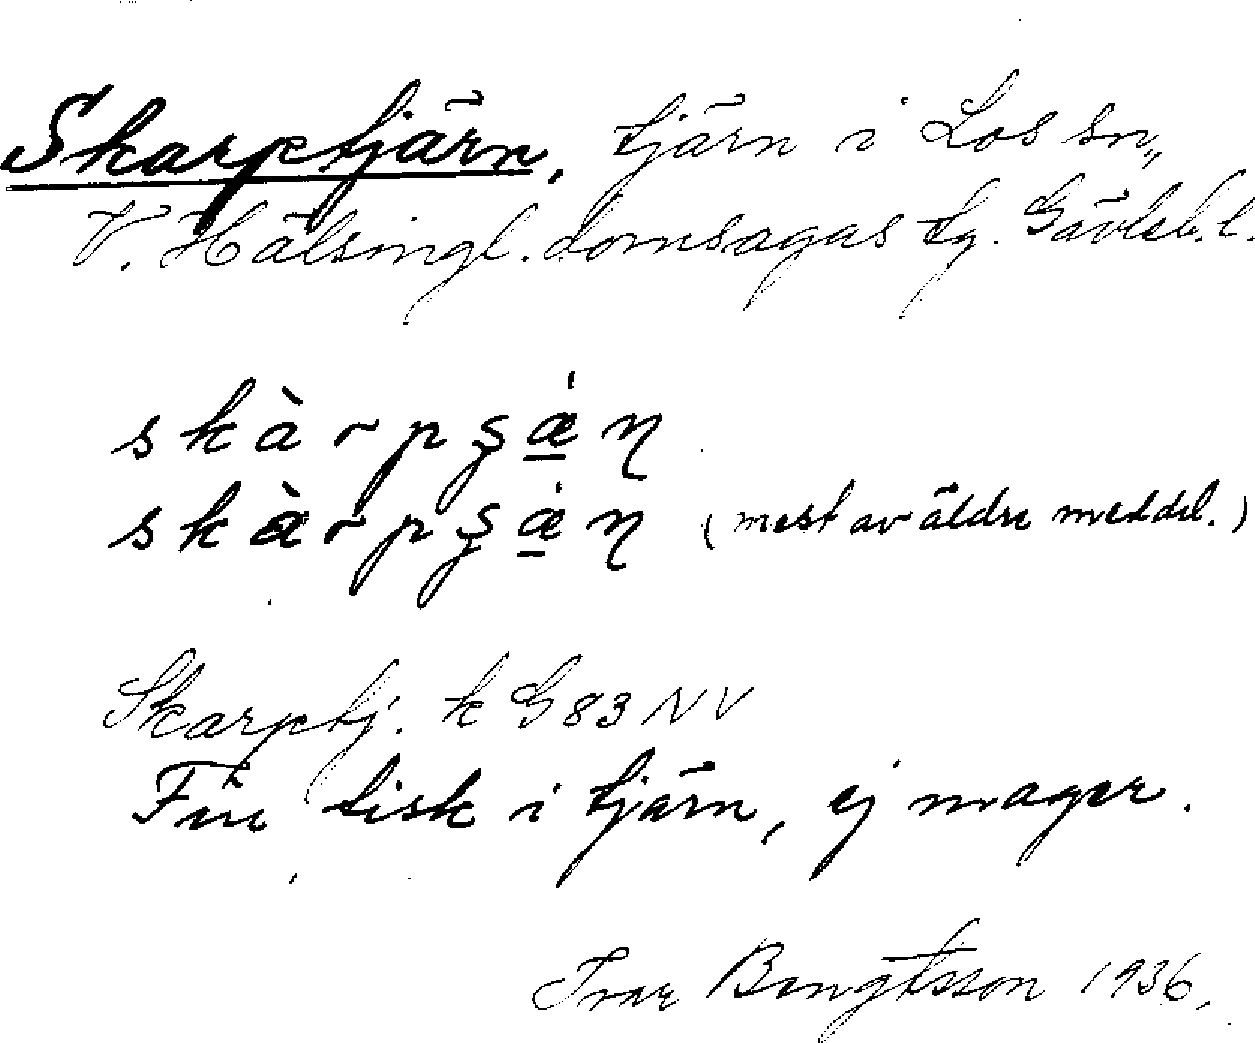 Skarptjärn, tjärn i Los sn,
V. Hälsingl. domsagas tg. Gävleb. l.
skàrpʂæ̠̀ɳ
skàrpʂà̠ɳ (mest av äldre meddel.)
Skarptj. k G 83 NV
Fin fisk i tjärn, ej mager.
Ivar Bengtsson 1936.